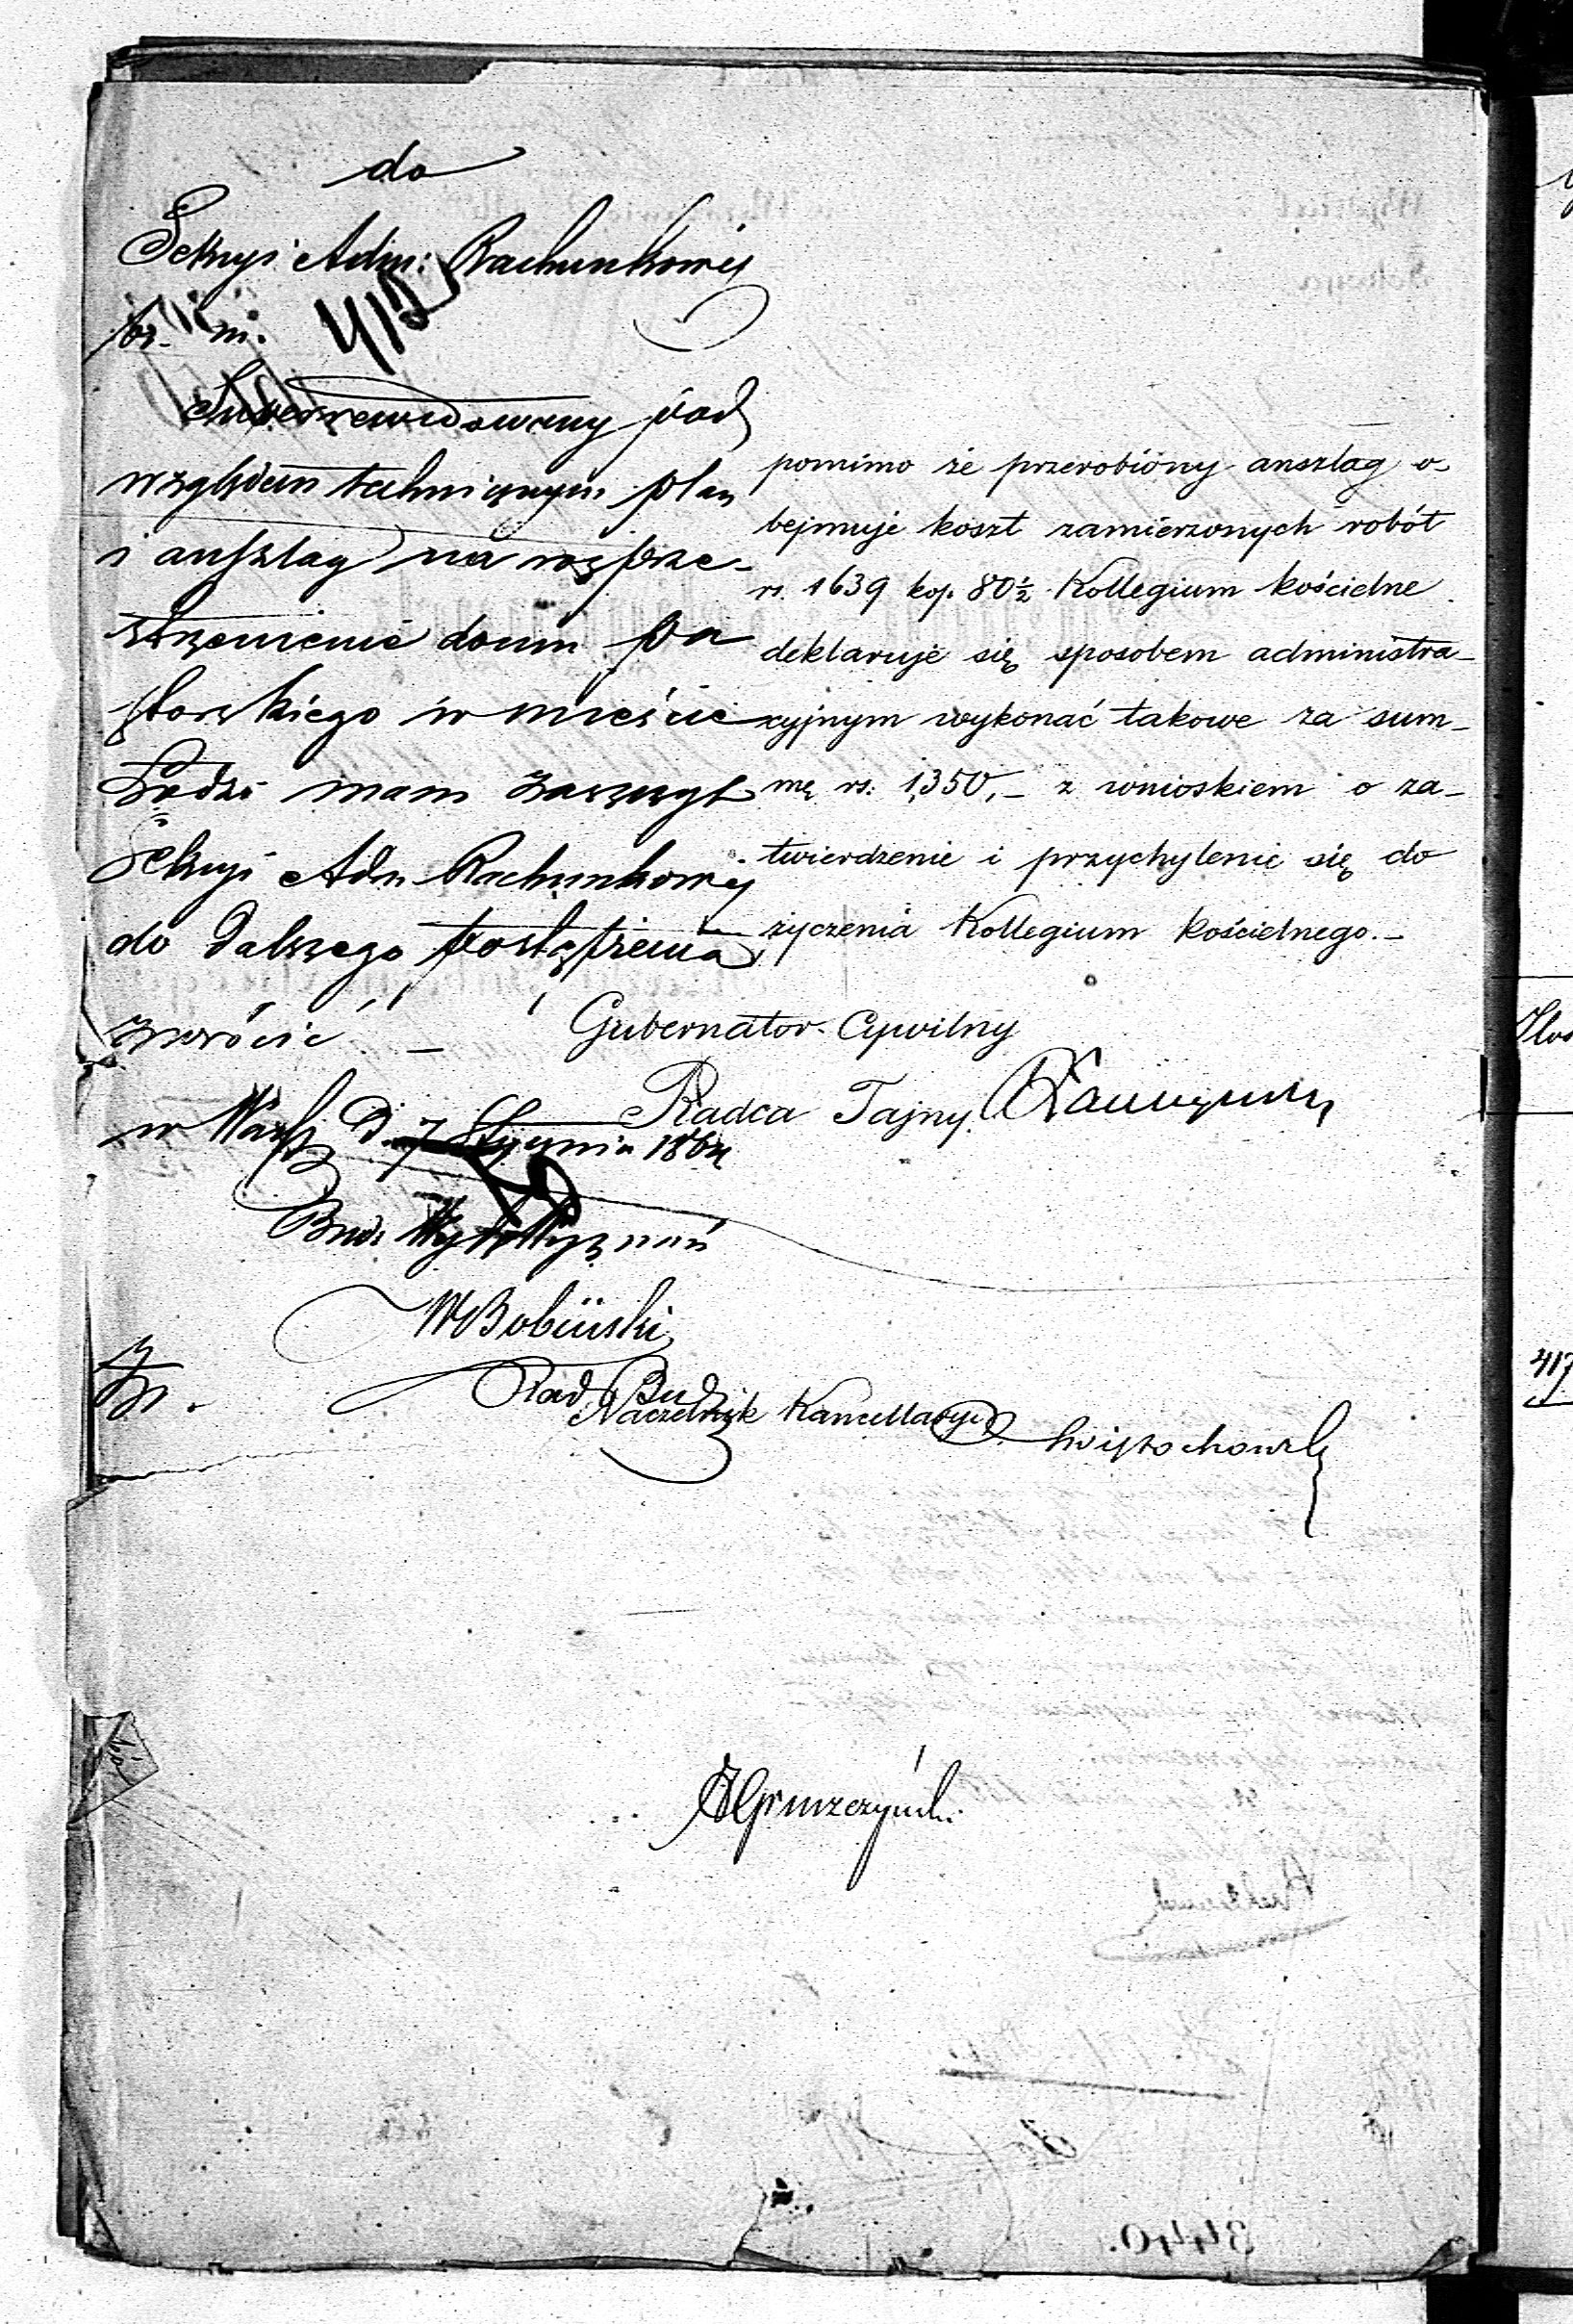 do
Sekcyi Adm: Rachunkowej
w m.
Superrewidowany pod
względem technicznym plan
i anszlag na rozprze-
strzenienie domu pa
storskiego w mieście
Łodzi mam zaszczyt
Sekcyi Adm Rachunkowej
do dalszego postąpienia
zwrócić –
w Warsz d. 7 Stycznia 1864
Bud: Wyz
WBobiński
Rad Bud
pomimo że przerobiony anszlag o-
bejmuje koszt zamierzonych robót
rs. 1639 kop. 80½ Kollegium kościelne
deklaruje się sposobem administra-
cyjnym wykonać takowe za sum-
mę rs: 1,350,– z wnioskiem o za-
twierdzenie i przychylenie się do
życzenia Kollegium kościelnego.–
Gubernator Cywilny
Radca Tajny
Naczelnik Kancellaryi
417